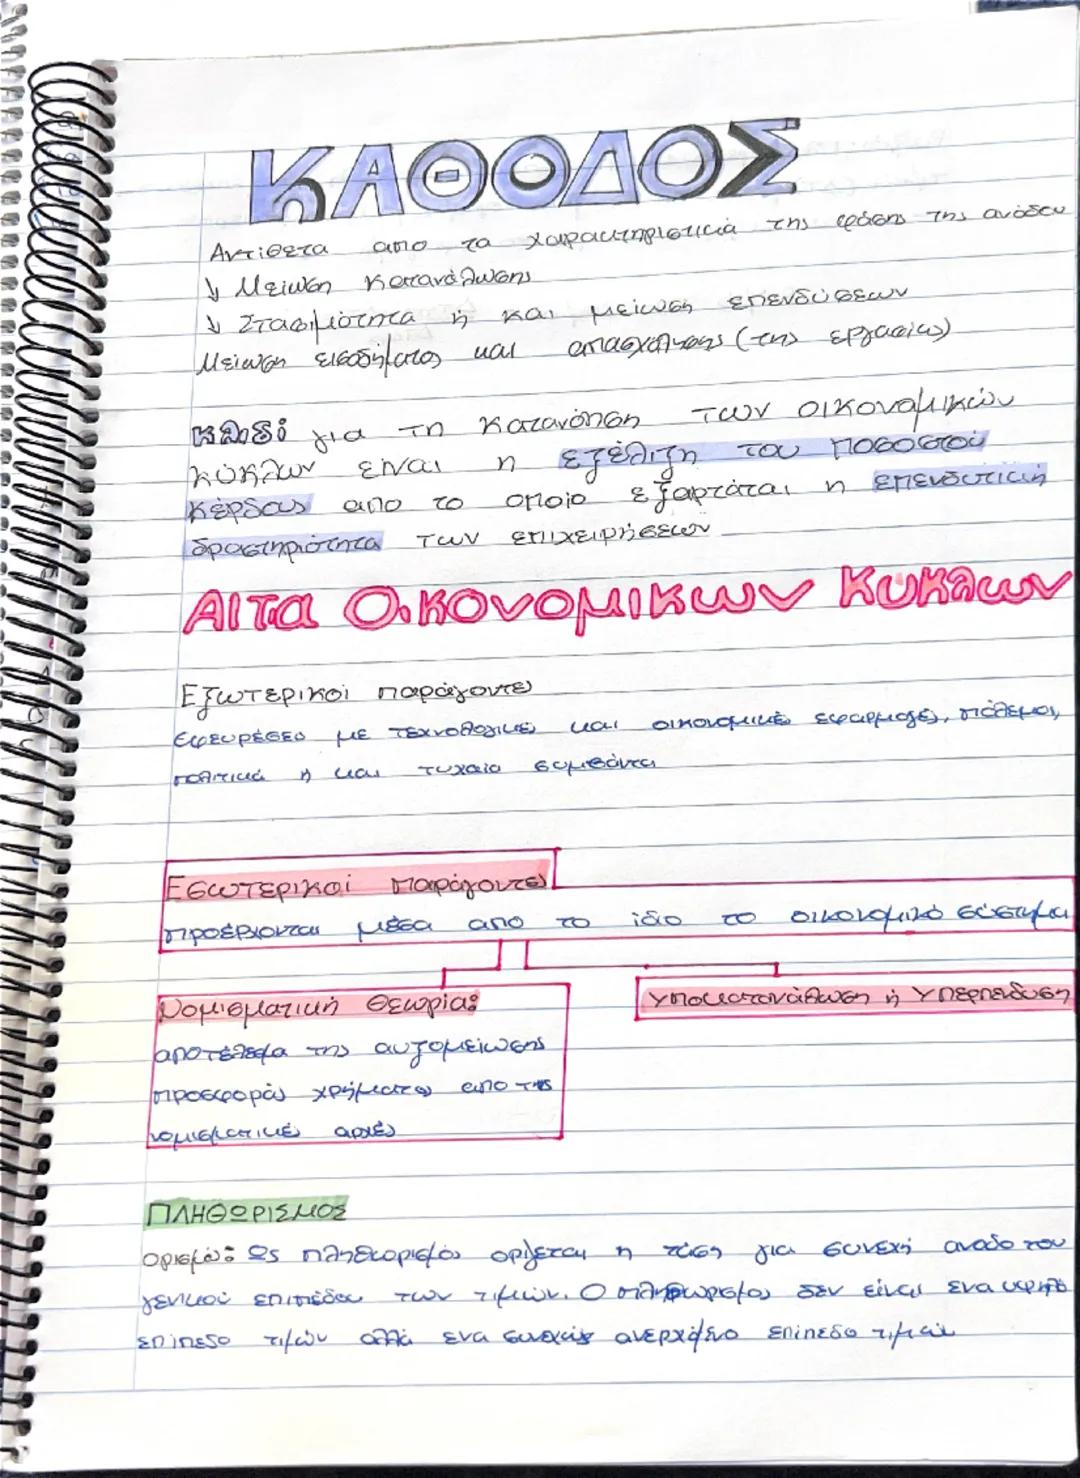 ΚΑΘΟΔΟΣ
Αντίθετα απο τα χαρακτηριστικά της φάσης της ανόδου
↓ Μείωση κατανάλωσης
↓ Στασιμότητα ή και μείωση επενδύσεων
Μείωση εισοδήματος και απασχόλησης (της εργασίας)
Κλειδί για τη κατανόηση των οικονομικών
κύκλων είναι η εξέλιξη του ποσοστού
κέρδους απο το οποίο εξαρτάται η επενδυτική
δραστηριότητα των επιχειρήσεων
ΑΙΤΙΑ ΟΙΚΟΝΟΜΙΚΩΝ ΚΥΚΛΩΝ
Εξωτερικοί παράγοντες
εφευρέσεις με τεχνολογικές και οικονομικές εφαρμογές, πόλεμοι,
πολιτικά ή και τυχαία συμβάντα
Εσωτερικοί παράγοντες
προέρχονται μέσα απο το ίδιο το οικονομικό σύστημα
Νομισματική θεωρία:
Υποκατανάλωση ή Υπερεπένδυση
αποτέλεσμα της αυξομείωσης
προσφοράς χρήματος απο τις
νομισματικές αρχές
ΠΛΗΘΩΡΙΣΜΟΣ
Ορισμός: Ως πληθωρισμός ορίζεται η τάση για συνεχή ανοδο του
γενικού επιπέδου των τιμών. Ο πληθωρισμός δεν είναι ενα υψηλό
επίπεδο τιμών αλλά ενα συνεχώς ανερχόμενο επίπεδο τιμών